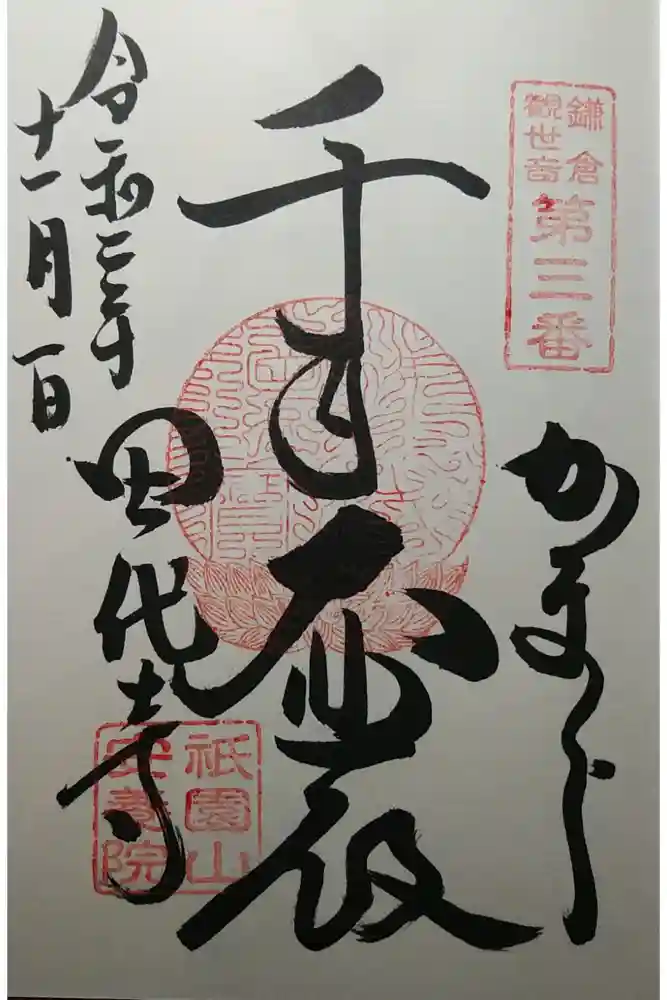 鎌倉
観世音
第三番
かまくら
千手大悲殿
田代寺
令和二年
十一月一日
祇園山
安養院